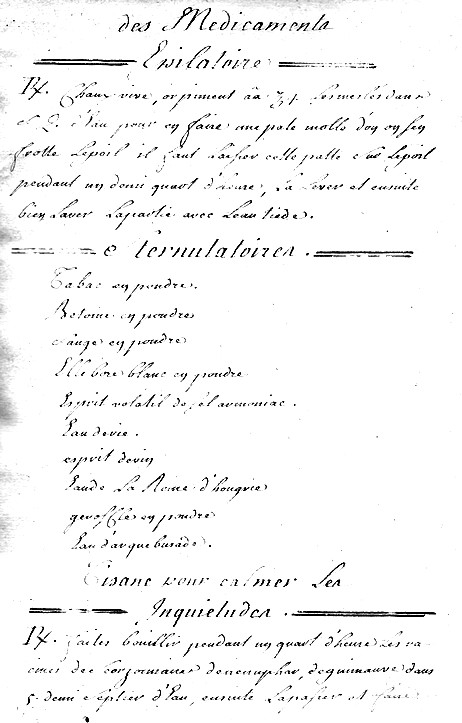 des Medicaments
Epilatoire
Rx. Chaux vive, orpiment āa ℥j. les mesles dans
d'Eau pour en faire une pate molle dont on se
frotte Le poil il faut Laisser cette patte Le poil
pendant un demi quart d'heure, La Lever et ensuite
bien Laver La partie avec Leau tiede.
Sternutatoires.
Tabac en poudre.
Betoine en poudre
en poudre
Ellebore blanc en poudre
Esprit volatil de sel armoniac.
Eau de vie.
esprit de vin
Eau de La Reine d'hongrie
geroffle en poudre
Eau d'arquebusade.
Tisane pour calmer Les
Inquietudes.
Rx. faites bouillir pendant un quart d'heure Les ra
cines de de nenuphar, de guimauve dans
demi septier d'Eau, ensuite La passer et faire